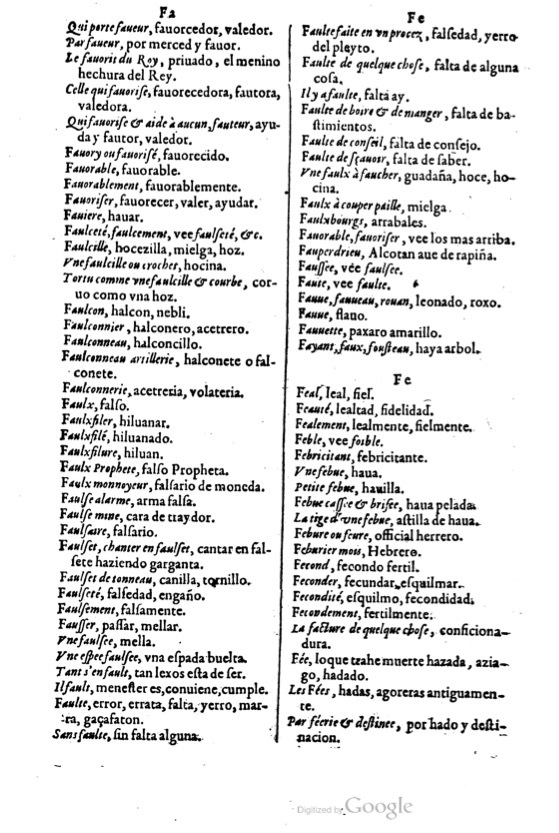 Fa
Qui porte faueur, fauorcedor, valedor.
Par faueur, por merced y fauor.
Le fauorit du Roy, priuado, el menino
hechura del Rey.
Celle qui fauorise, fauorecedora, fautora,
valedora.
Qui fauorise & aide à aucun, fauteur, ayu-
da y fautor, valedor.
Fauory ou fauorisé, fauorecido.
Fauorable, fauorable.
Fauorablement, fauorablemente.
Fauoriser, fauorecer, valer, ayudar.
Fauiere, hauar.
Faulceté, faulcement, vee faulseté, &c.
Faulcille, hocezilla, mielga, hoz.
Vne faulcille ou crocher, hocina.
Tortu comme vne faulcille & courbe, cor-
uo como vna hoz.
Faulcon, halcon, nebli.
Faulconnier, halconero, acetrero.
Faulconneau, halconcillo.
Faulconneau artillerie, halconete o fal-
conete.
Faulconnerie, acetreria, volateria.
Faulx, falso.
Faulxfiler, hiluanar.
Faulxfilé, hiluanado.
Faulxfilure, hiluan.
Faulx Prophete, falso Propheta.
Faulx monnoyeur, falsario de moneda.
Faulse alarme, arma falsa.
Faulse mine, cara de traydor.
Faulsaire, falsario.
Faulset, chanter en faulset, cantar en fal-
sete haziendo garganta.
Faulset de tonneau, canilla, tornillo.
Faulseté, falsedad, engaño.
Faulsement, falsamente.
Faulser, passar, mellar.
Vne faulsee, mella.
Vne espee faulsee, vna espada buelta.
Tant s'en fault, tan lexos esta de ser.
Il fault, menester es, conuiene, cumple.
Faulte, error, errata, falta, yerro, mar-
ra, gaçafaton.
Sans faulte, sin falta alguna.
Fe
Faulte faite en vn procez, falsedad, yerro
del pleyto.
Faulte de quelque chose, falta de alguna
cosa.
Il y a faulte, falta ay.
Faulte de boire & de manger, falta de ba-
stimientos.
Faulte de conseil, falta de consejo.
Faulte de sçauoir, falta de saber.
Vne faulx à faucher, guadaña, hoce, ho-
cina.
Faulx à couper paille, mielga.
Faulxbourgs, arrabales.
Fauorable, fauoriser, vee los mas arriba.
Fauperdrieu, Alcotan aue de rapiña.
Faussee, vée faulsee.
Faute, vee faulte.
Fauue, fauueau, rouan, leonado, roxo.
Fauue, flauo.
Fauuette, paxaro amarillo.
Fayant, faux, fousteau, haya arbol.
Fe
Feal, leal, fiel.
Feauté, lealtad, fidelidad.
Fealement, lealmente, fielmente.
Feble, vee foible.
Febricitant, febricitante.
Vne febue, haua.
Petite febue, hauilla.
Febue cassee & brisee, haua pelada.
La tige d'vne febue, astilla de haua.
Febure ou feure, official herrero.
Feburier mois, Hebrero.
Fecond, fecondo fertil.
Feconder, fecundar, esquilmar.
Fecondité, esquilmo, fecondidad.
Fecondement, fertilmente.
La facture de quelque chose, conficiona-
dura.
Fée, lo que trahe muerte hazada, azia-
go, hadado.
Les Fées, hadas, agoreras antiguamen-
te.
Par féerie & destinee, por hado y desti-
nacion.
Digitized by Google